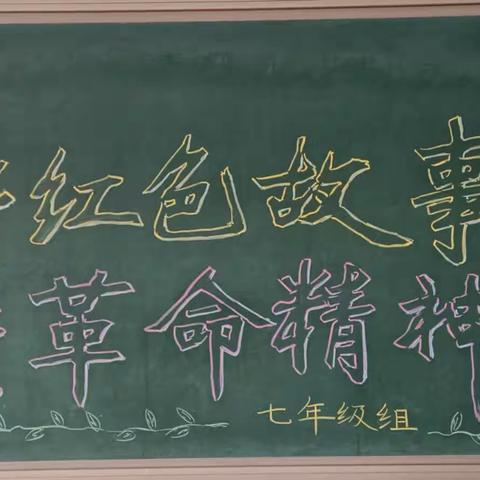 红色故事
革命精神
七年级组